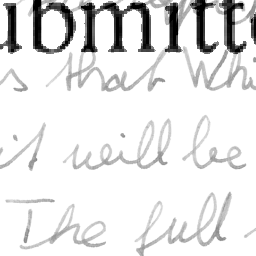 ubmitte
s that Whi
it will be
The full